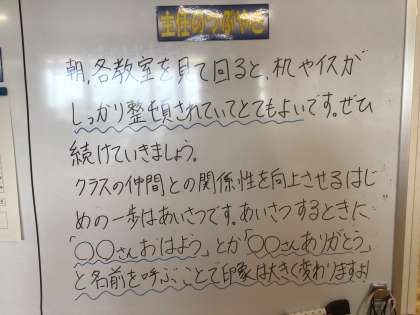 主任のつぶやき
朝、各教室を見て回ると、机やイスが
しっかり整頓されていてとてもよいです。ぜひ
続けていきましょう。
クラスの仲間との関係性を向上させるはじ
めの一歩はあいさつです。あいさつするときに
「〇〇さんおはよう」とか「〇〇さんありがとう」
と名前を呼ぶことで印象は大きく変わりますよ!